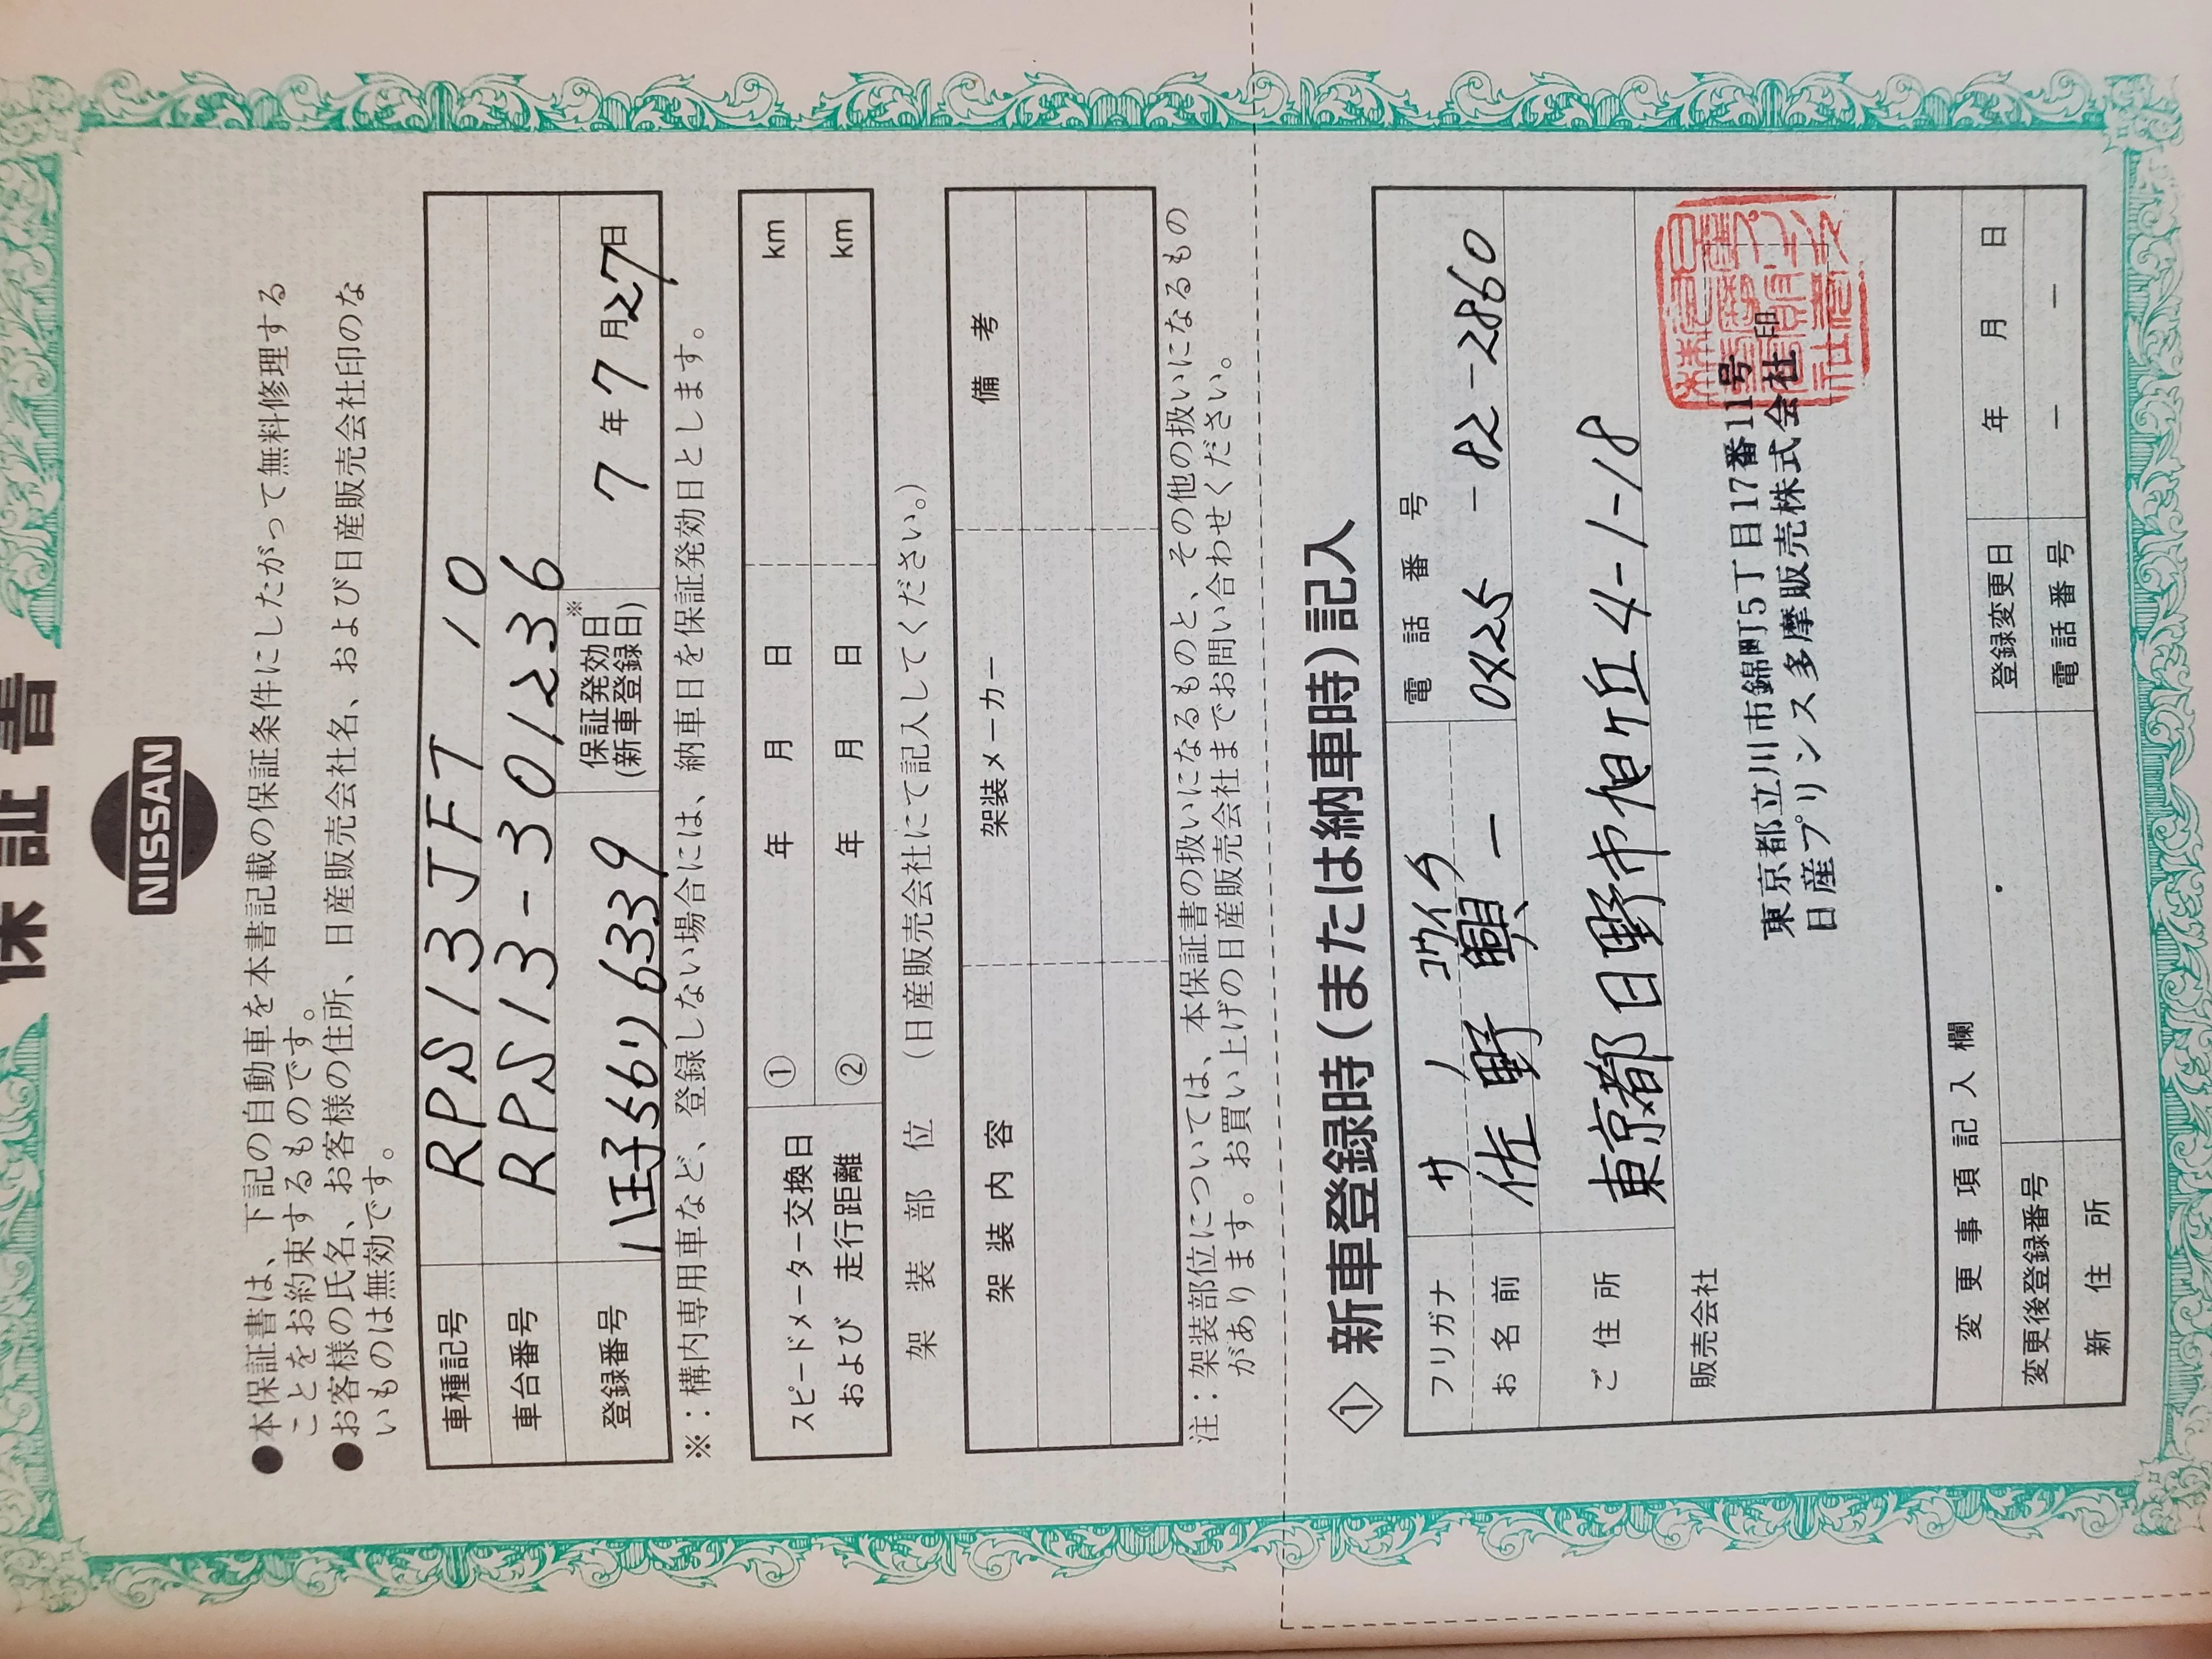 保証書
NISSAN
●本保証書は、下記の自動車を本書記載の保証条件にしたがって無料修理する
ことをお約束するものです。
●お客様の氏名、お客様の住所、日産販売会社名、および日産販売会社印のな
いものは無効です。
車種記号 RPS13JFT 10
車台番号 RPS13-301236
登録番号 八王子56り6339 保証発効日※ (新車登録日) 7年7月27日
※：構内専用車など、登録しない場合には、納車日を保証発効日とします。
スピードメーター交換日 ① 年 月 日 km
および 走行距離 ② 年 月 日 km
架装部位 (日産販売会社にて記入してください。)
架装内容 架装メーカー 備考
注：架装部位については、本保証書の扱いになるものと、その他の扱いになるもの
があります。お買い上げの日産販売会社までお問い合わせください。
① 新車登録時(または納車時)記入
フリガナ サノ コウイチ 電話番号
お名前 佐野 興一 0425-82-2860
ご住所 東京都日野市旭ヶ丘4-1-18
販売会社
東京都立川市錦町5丁目17番11号
日産プリンス多摩販売株式会社 印
変更事項記入欄
変更後登録番号 登録変更日 年 月 日
新住所 電話番号 － －